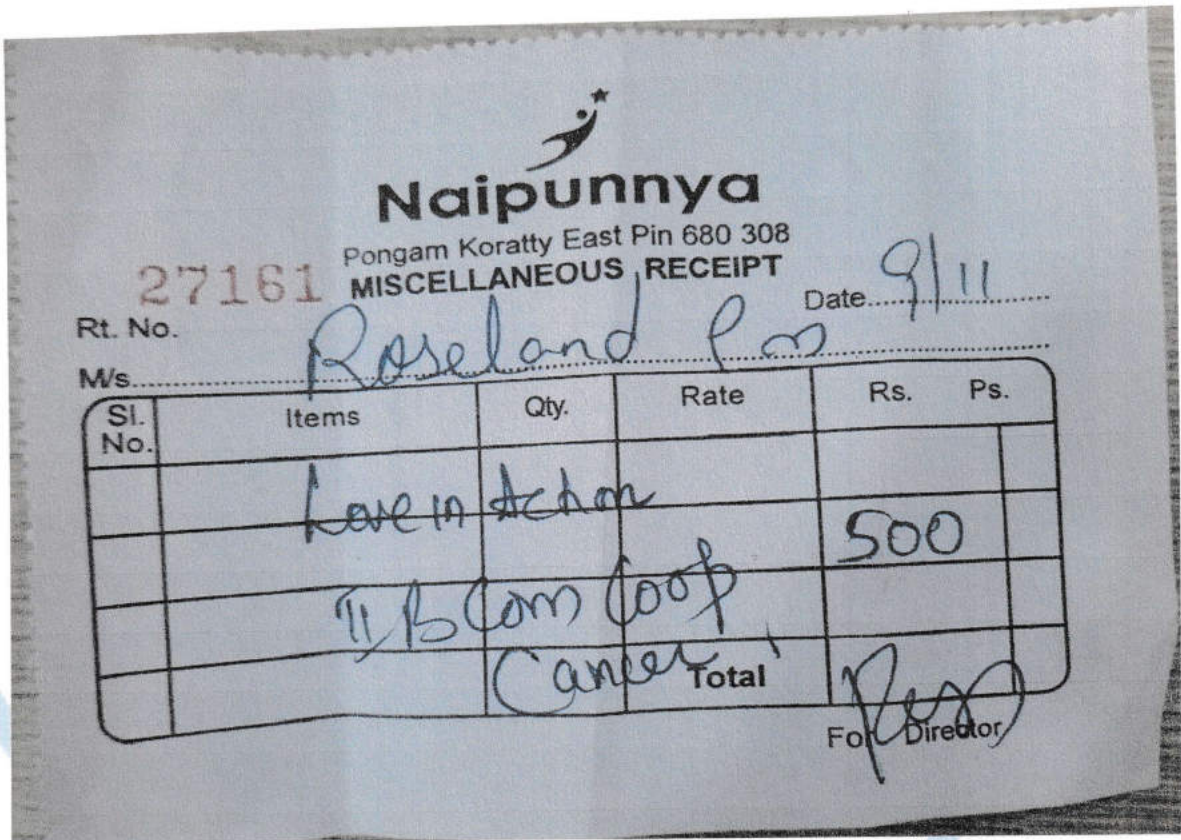 Naipunnya
Pongam Koratty East Pin 680 308
27161 MISCELLANEOUS RECEIPT
Rt. No. Date 9/11
M/s. Roseland
Sl. No. Items Qty. Rate Rs. Ps.
Love in Action
500
II B Com Coop
Cancer
Total
For Director